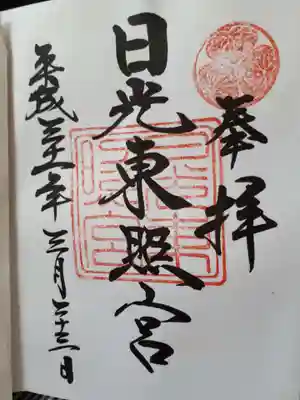 奉拝
日光東照宮
平成三十一年三月二十三日